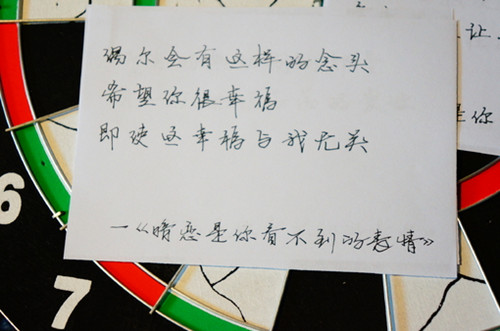 偶尔会有这样的念头
希望你很幸福
即使这幸福与我无关
一《暗恋是你看不到的表情》
让
是你
6
7